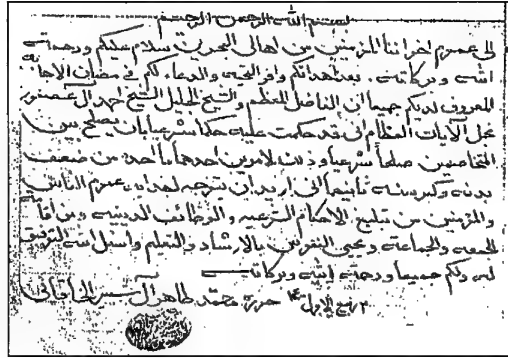 بسم الله الرحمن الرحيم
الى عموم اخواننا المؤمنين من اهالي البحرين سلام عليكم ورحمة
الله وبركاته . بعد اهدائكم وافر التحية والدعاء لكم في مضان الاجابة
المعروف لديكم جميعا ان الفاضل المعظم والشيخ الجليل الشيخ احمد آل عصفور
نجل الآيات العظام اني قد حكمت عليه حكما شرعيا بان يصلح بين
المتخاصمين صلحا شرعيا وذلك لامرين احدهما ما أجده من ضعف
بدنه وكبر سنه ثانيهما اني اريد ان يتوجه لهداية عموم الناس
والمؤمنين من تبليغ الاحكام الشرعية والوظائف الدينية ومن اقامة
الجمعة والجماعة ومحيي النفوس بالارشاد والتعليم واسئل الله التوفيق
له ولكم جميعا ورحمة الله وبركاته
ربيع الاول حرره محمد طاهر آل شبير الخاقاني